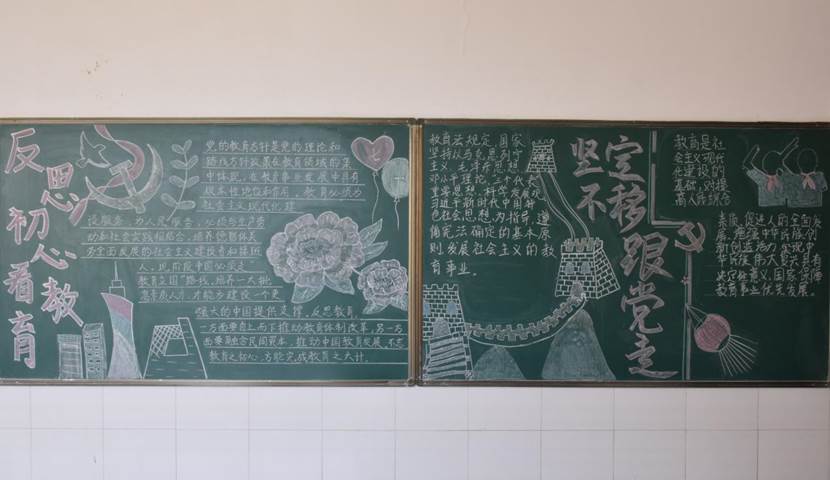 反思初心看教育
党的教育方针是党的理论和
路线方针政策在教育领域的集
中体现，在教育事业发展中具有
根本性地位和作用。教育必须为
社会主义现代化建
设服务、为人民服务，必须与生产劳
动和社会实践相结合，培养德智体美
劳全面发展的社会主义建设者和接班
人。现阶段中国必须走
教育立国 路线，培养一大批
高素质人才，才能为建设一个更
强大的中国提供支撑，反思教育，
一方面要自上而下推动教育体制改革，另一方
面要融合民间资本，推动中国教育发展，不忘
教育之初心，方能完成教育之大计。
教育法规定，国家
坚持以马克思列宁
主义、毛泽东思想、
邓小平理论、三个代表
重要思想、科学发展观、
习近平新时代中国特
色社会思想为指导，遵
循宪法确定的基本原
则，发展社会主义的教
育事业。
坚定不移跟党走
教育是社
会主义现代
化建设的
基础，对提
高人民综合
素质、促进人的全面发
展、增强中华民族创
新创造活力、实现中
华民族伟大复兴具有
决定性意义，国家保障
教育事业优先发展。